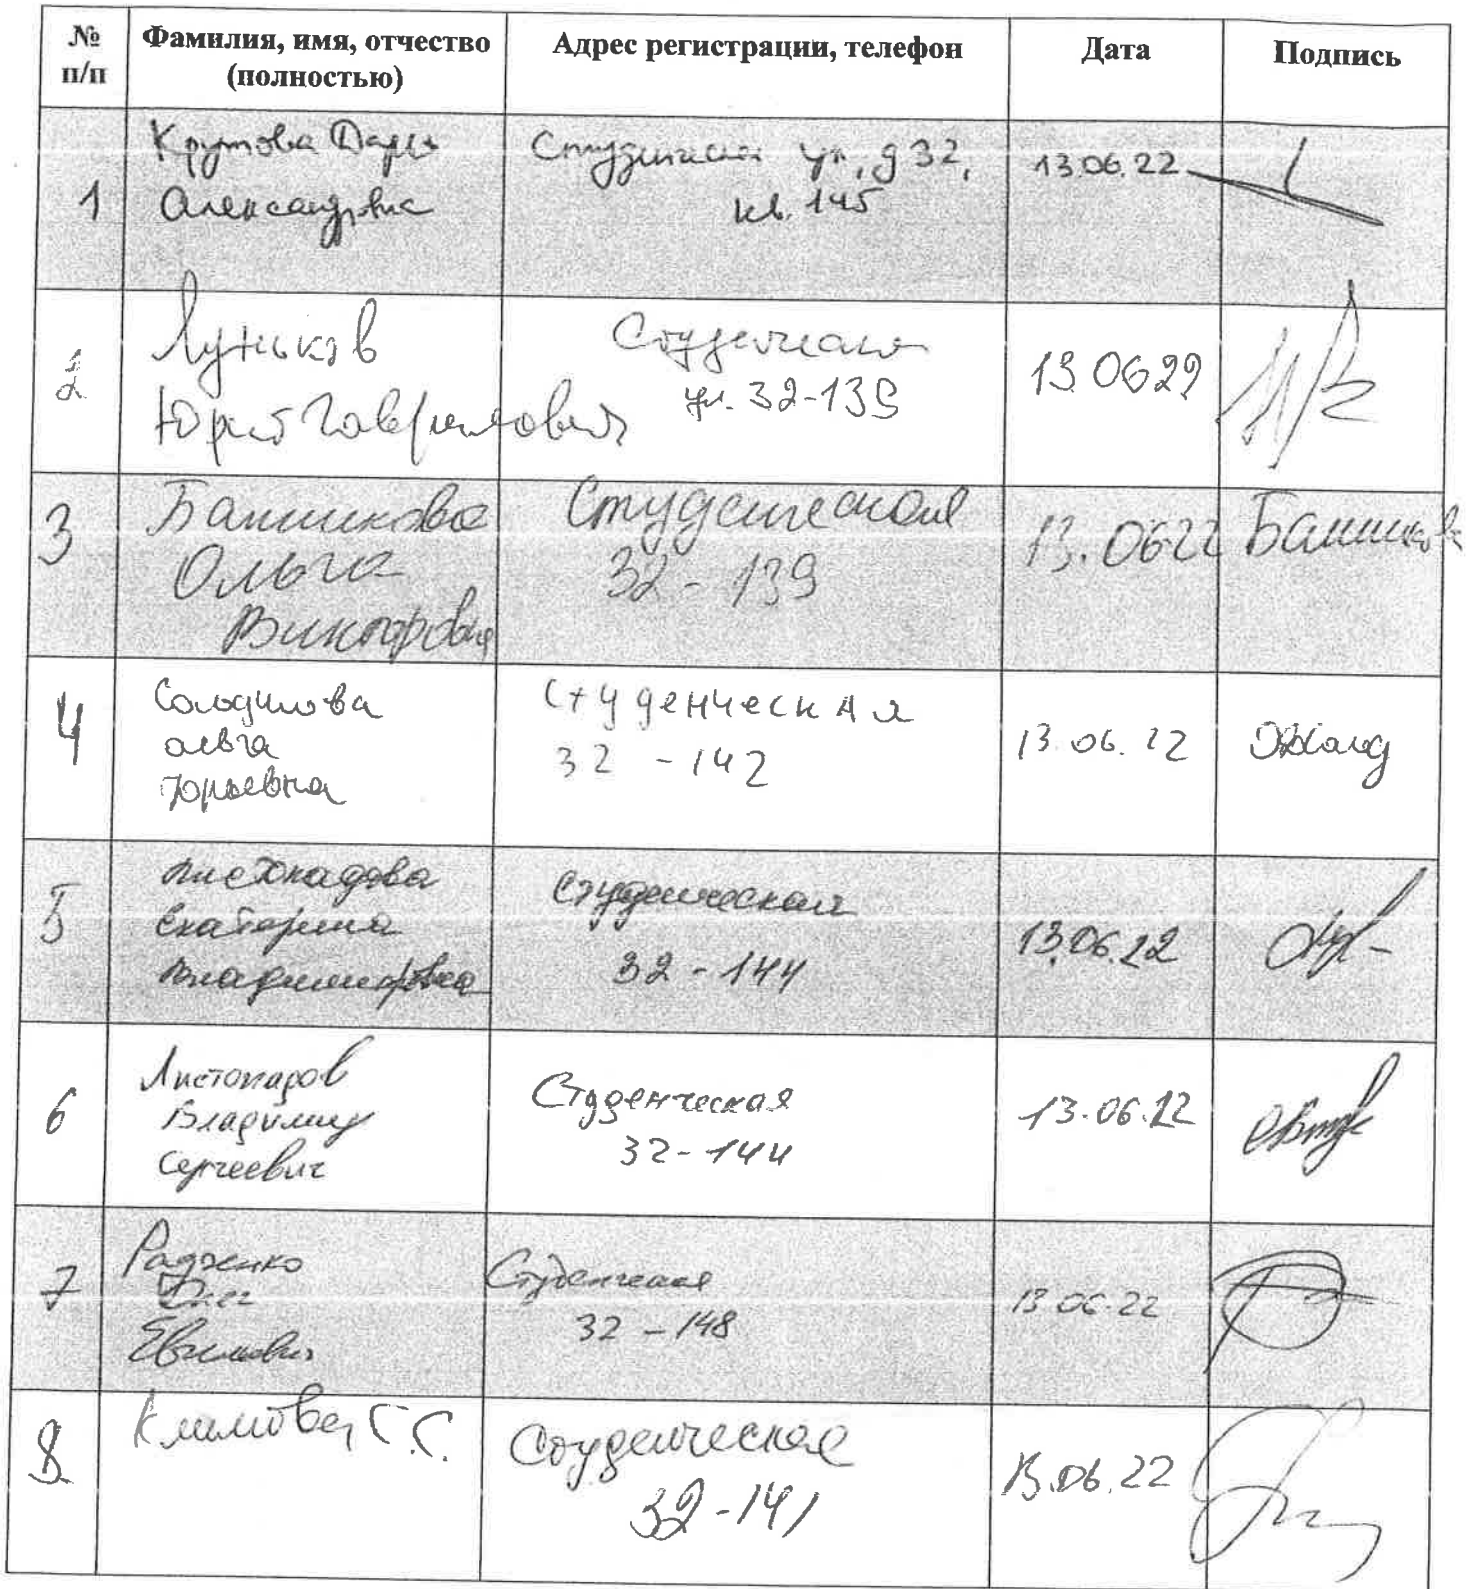 № п/п
Фамилия, имя, отчество (полностью)
Адрес регистрации, телефон
Дата
Подпись
1
Крутова Дарья
Александровна
Студенческая ул., д 32,
кв. 145
13.06.22
2
Луньков
Юрий Гаврилович
Студенческая
ул. 32-139
13.06 22
3
Башикова
Ольга
Викторовна
Студенческая
32 - 139
13.06 22
4
Солодилова
Ольга
Юрьевна
Студенческая
32 - 142
13.06.22
5
Листопадова
Екатерина
Владимировна
Студенческая
32 - 144
13.06.22
6
Листопадов
Владимир
Сергеевич
Студенческая
32-144
13.06.22
7
Радченко
Олег
Студенческая
32 - 148
13.06.22
8.
Климова Г.С.
Студенческая
32-141
13.06.22